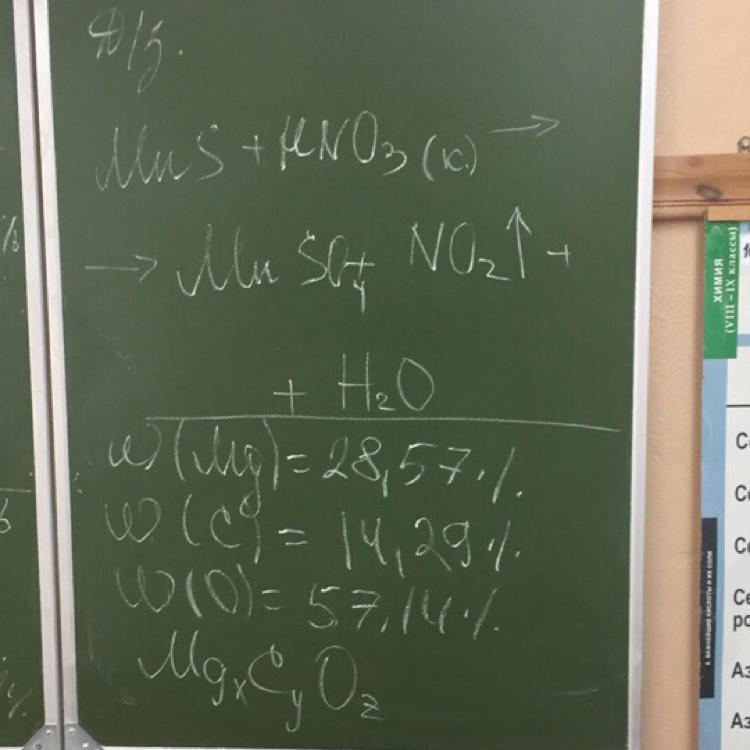 Д/з.
MnS + HNO₃ (к.) →
→ MnSO₄ + NO₂↑ +
+ H₂O
w(Mg) = 28,57%.
w(C) = 14,29%.
w(O) = 57,14%.
MgₓCᵧO_z
%
ХИМИЯ
(VIII – IX классы)
Се
Се
ро
Аз
Аз